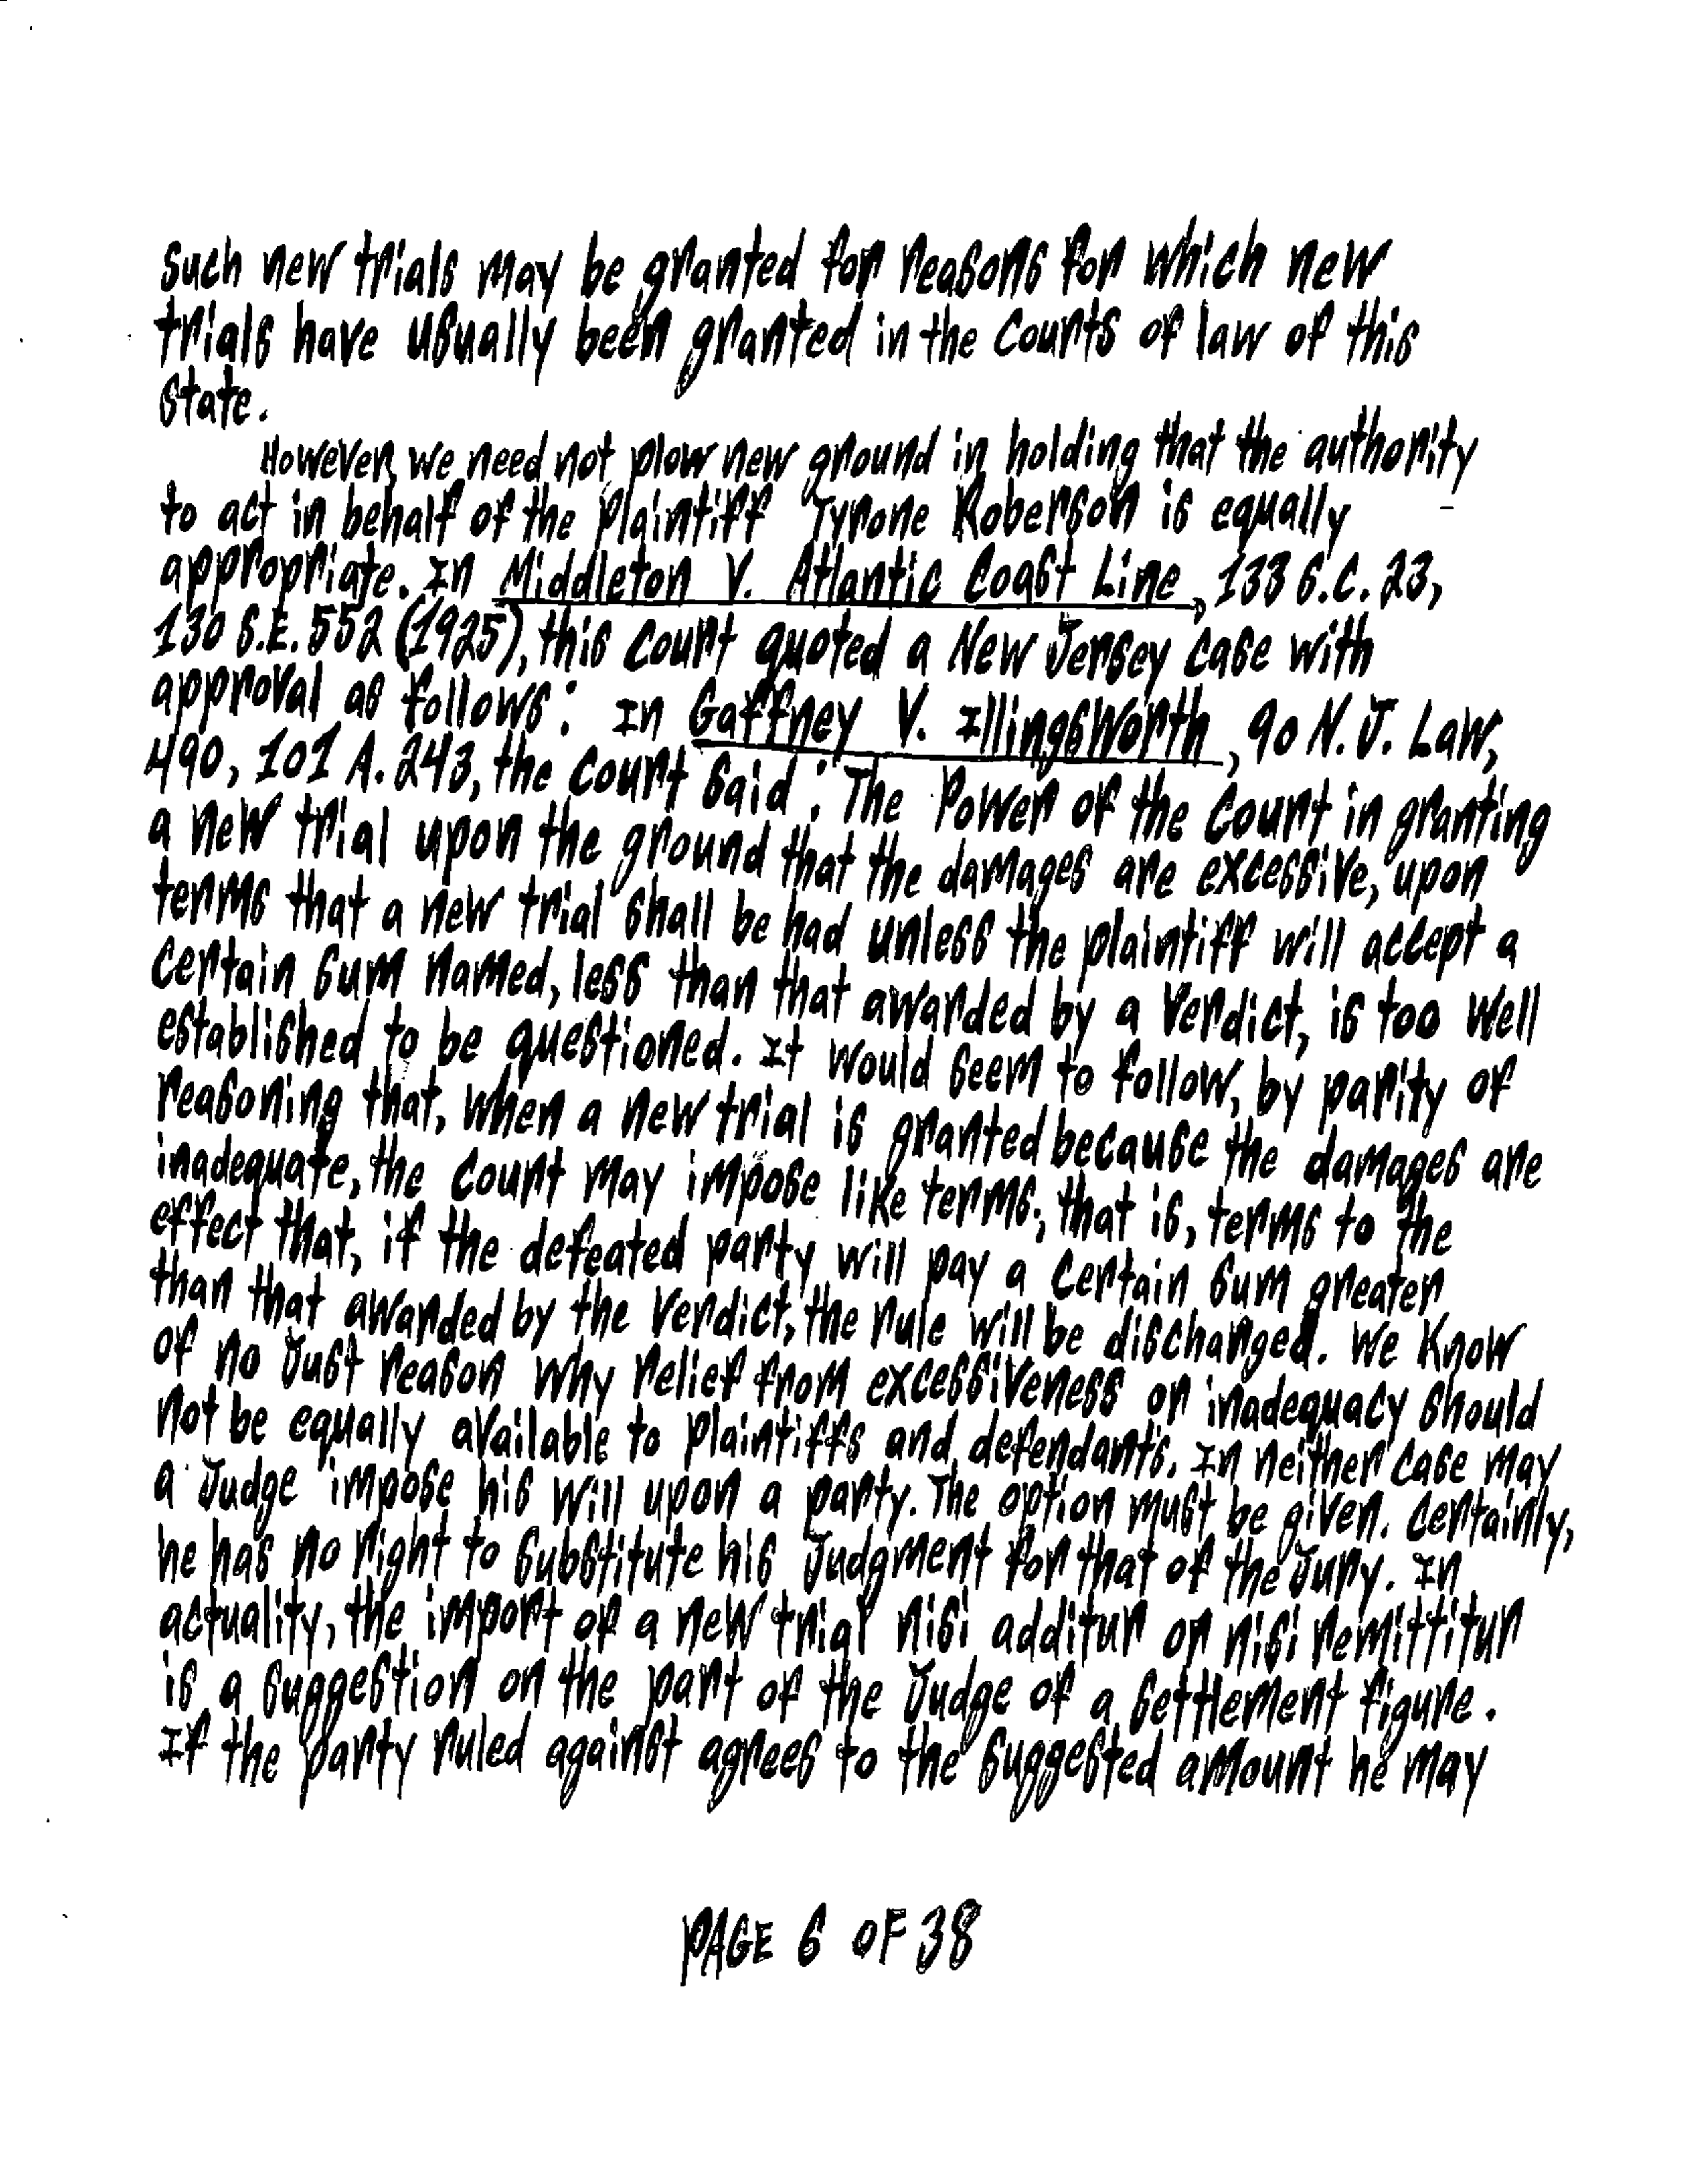 such new trials may be granted for reasons for which new
trials have usually been granted in the courts of law of this
state.
However, we need not plow new ground in holding that the authority
to act in behalf of the plaintiff Tyrone Roberson is equally
appropriate. In Middleton V. Atlantic Coast Line, 133 S.C. 23,
130 S.E. 552 (1925), this court quoted a New Jersey case with
approval as follows: In Gaffney V. Illingsworth, 90 N.J. Law,
490, 101 A. 243, the court said: The Power of the court in granting
a new trial upon the ground that the damages are excessive, upon
terms that a new trial shall be had unless the plaintiff will accept a
certain sum named, less than that awarded by a verdict, is too well
established to be questioned. It would seem to follow, by parity of
reasoning that, when a new trial is granted because the damages are
inadequate, the court may impose like terms; that is, terms to the
effect that, if the defeated party will pay a certain sum greater
than that awarded by the verdict, the rule will be discharged. We know
of no Just reason why relief from excessiveness or inadequacy should
not be equally available to plaintiffs and defendants. In neither case may
a Judge impose his will upon a party. The option must be given. Certainly,
he has no right to substitute his Judgment for that of the Jury. In
actuality, the import of a new trial nisi additur or nisi remittitur
is a suggestion on the part of the Judge of a settlement figure.
If the party ruled against agrees to the suggested amount he may
PAGE 6 OF 38